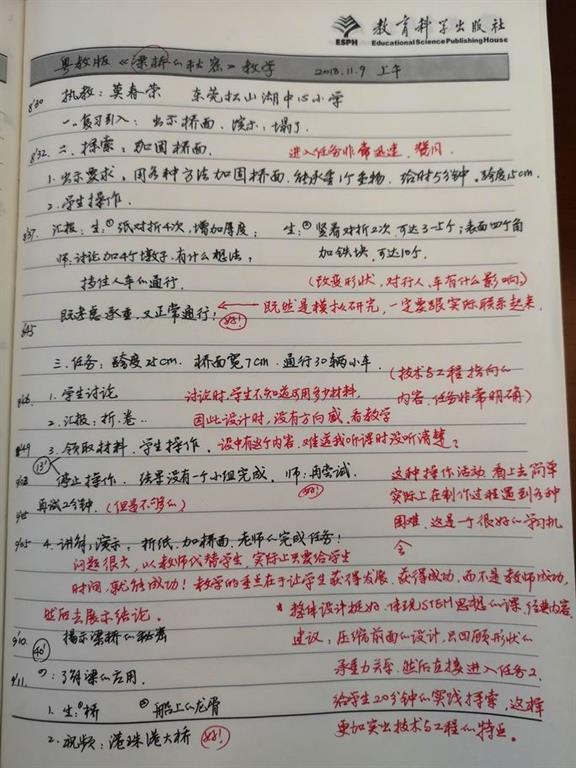 教育科学出版社
ESPH Educational Science Publishing House
粤教版《梁桥的秘密》教学 2018.11.9 上午
8:30 执教：莫春荣 东莞松山湖中心小学
一、复习引入：出示桥面，演示，塌了
8:32 二、探索：加固桥面. 进入任务非常迅速，赞同
1. 出示要求，用各种方法加固桥面，能承重1个重物. 给时5分钟。跨度15cm.
2. 学生操作.
8:37 汇报：生：①纸对折4次，增加厚度； 生：②竖着对折2次可达3-5个；表面四个角
师：讨论加4个墩子，有什么想法； 加铁块，可达10个.
挡住人车的通行. （改变形状，对行人、车有什么影响？）
既考虑承重，又正常通行！ 好！ 既然是模拟研究，一定要跟实际联系起来.
8:45
三、任务：跨度25cm. 桥面宽7cm. 通行30辆小车. （技术与工程指向的
8:46 1. 学生讨论 讨论时，学生不知道可用多少材料， 内容，任务非常明确）
2. 汇报：折、卷.. 因此设计时，没有方向感，看教学
8:49 3. 领取材料，学生操作. 设中有这个内容，难道我听课时没听清楚？
13'
停止操作. 结果没有一个小组完成. 师：再尝试. 好！ 这种操作活动，看上去简单
再试2分钟. （但是不够的） 实际上在制作过程遇到各种
困难，这是一个很好的学习机
9:05 4. 讲解，演示：折纸、加桥面，老师的完成任务！ 会
问题很大，以教师代替学生，实际上只要给学生
时间，就能成功！教学的重点在于让学生获得发展、获得成功，而不是教师成功，
然后去展示结论. * 整体设计挺好，体现STEM思想的课，经典内容.
9:10. 揭示梁桥的秘密 建议：压缩前面的设计，只回顾形状的
40' 承重力关系，然后直接进入任务2.
9:11. 四：了解梁的应用. 给学生20分钟的实践探索，这样
1. 生：①桥 ②船上的龙骨 更加突出技术与工程的特点。
2. 视频：港珠港大桥 好！